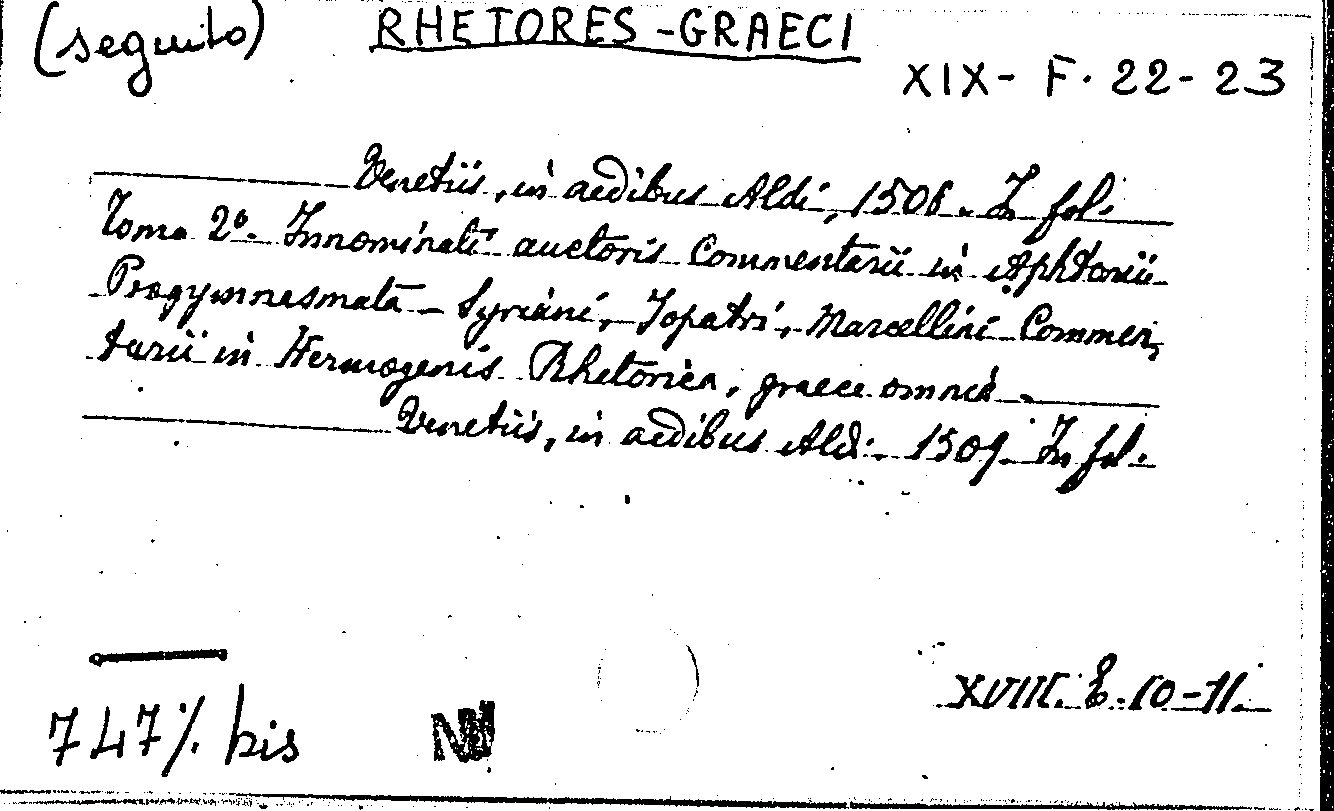 (seguito) RHETORES - GRAECI
XIX - F. 22 - 23
Venetiis, in aedibus Aldi, 1508. In fol.
Tomo 2º. Innominati auctoris Commentarii in Aphtonii
Progymnasmata - Syriani, Sopatri, Marcellini Commen,
tarii in Hermogenis Rhetorica, graece omnia.
Venetiis, in aedibus Aldi. 1509. In fol.
XVIII. E. 10-11.
747%. bis